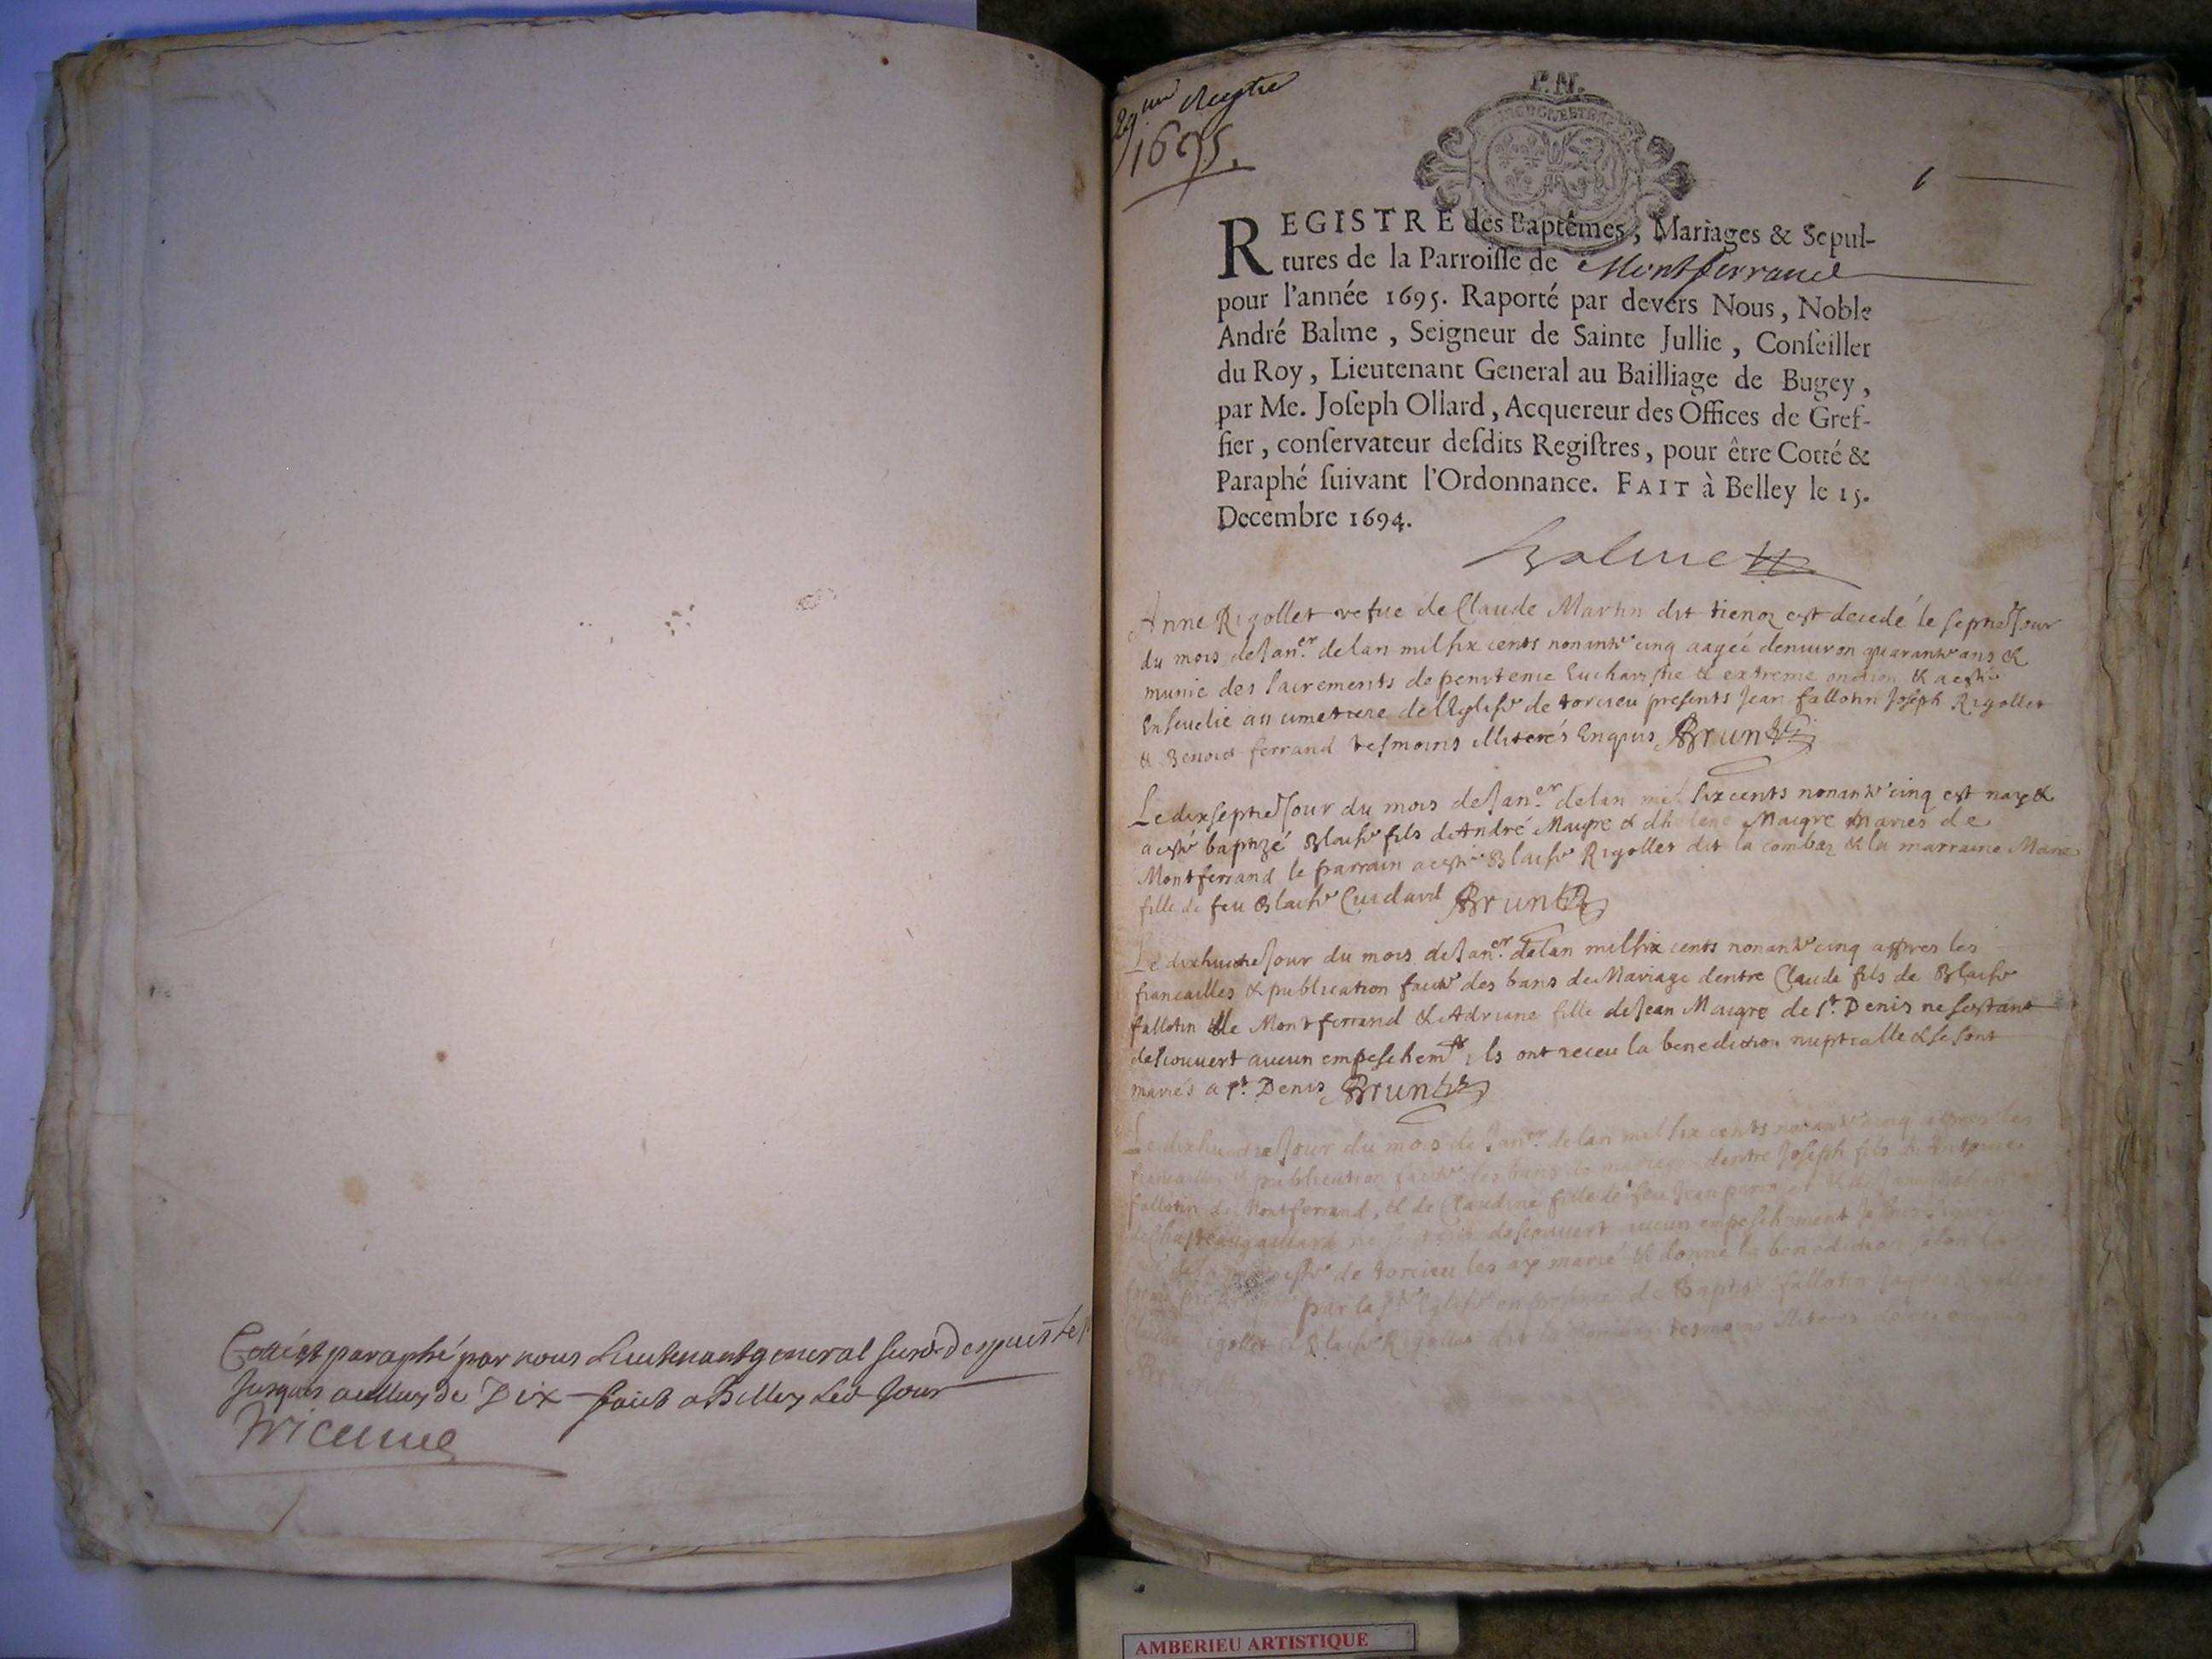 Cotté et paraphé par nous Lieutenant general susd. depuis le 1
Jusques au de Dix faict a Belley led Jour
1695.
P. N.
REGISTRE des Baptêmes, Mariages & Sepul-
tures de la Parroisse de Montferrand
pour l'année 1695. Raporté par devers Nous, Noble
André Balme, Seigneur de Sainte Jullie, Conseiller
du Roy, Lieutenant General au Bailliage de Bugey,
par Me. Joseph Ollard, Acquereur des Offices de Gref-
fier, conservateur desdits Registres, pour être Cotté &
Paraphé suivant l'Ordonnance. FAIT à Belley le 15.
Decembre 1694.
Balme
Anne Rigollet vefue de Claude Martin dit tienoz est decedé le septie Jour
du mois de Janer. de lan mil six cents nonante cinq aagée denuiron quarante ans &
munie des Sacrements de penitence Eucharistie & extreme onction & a esté
Enseuelie au cimetiere de lEglise de torcieu presents Jean fallotin Joseph Rigollet
& Benoid ferrand tesmoins illiterés Enquis Brun
Le dixseptie Jour du mois de Janer. de lan mil six cents nonante cinq est nay &
a esté baptizé Blaise fils de André Maigre & dhelene Maigre mariés de
Montferrand le parrain a esté Blaise Rigollet dit la combaz & la marraine Marie
fille de feu Blaise Brun
Le dixhuictie Jour du mois de Janer. de lan mil six cents nonante cinq appres les
fiancailles & publication faite des bans de Mariage dentre Claude fils de Blaise
fallotin de Montferrand & Adriane fille de Jean Maigre de St. Denis ne sestant
descouvert aucun empeschemt. ils ont receu la benediction nuptialle & se sont
mariés a St. Denis Brun
Le dixhuictie Jour du mois de Janer. de lan mil six cents nonante cinq appres les
fiancailles & publication faite des bans de mariage dentre Joseph fils de Antoine
fallotin de Montferrand, & de Claudine fille de feu Jean
de Chasteaugaillard ne descouvert aucun empeschement
de torcieu les ay marié & donné la benediction selon la
par la Eglise en presence de Baptiste fallotin
Rigollet & Blaise Rigollet dit la combaz tesmoins illiteres
AMBERIEU ARTISTIQUE